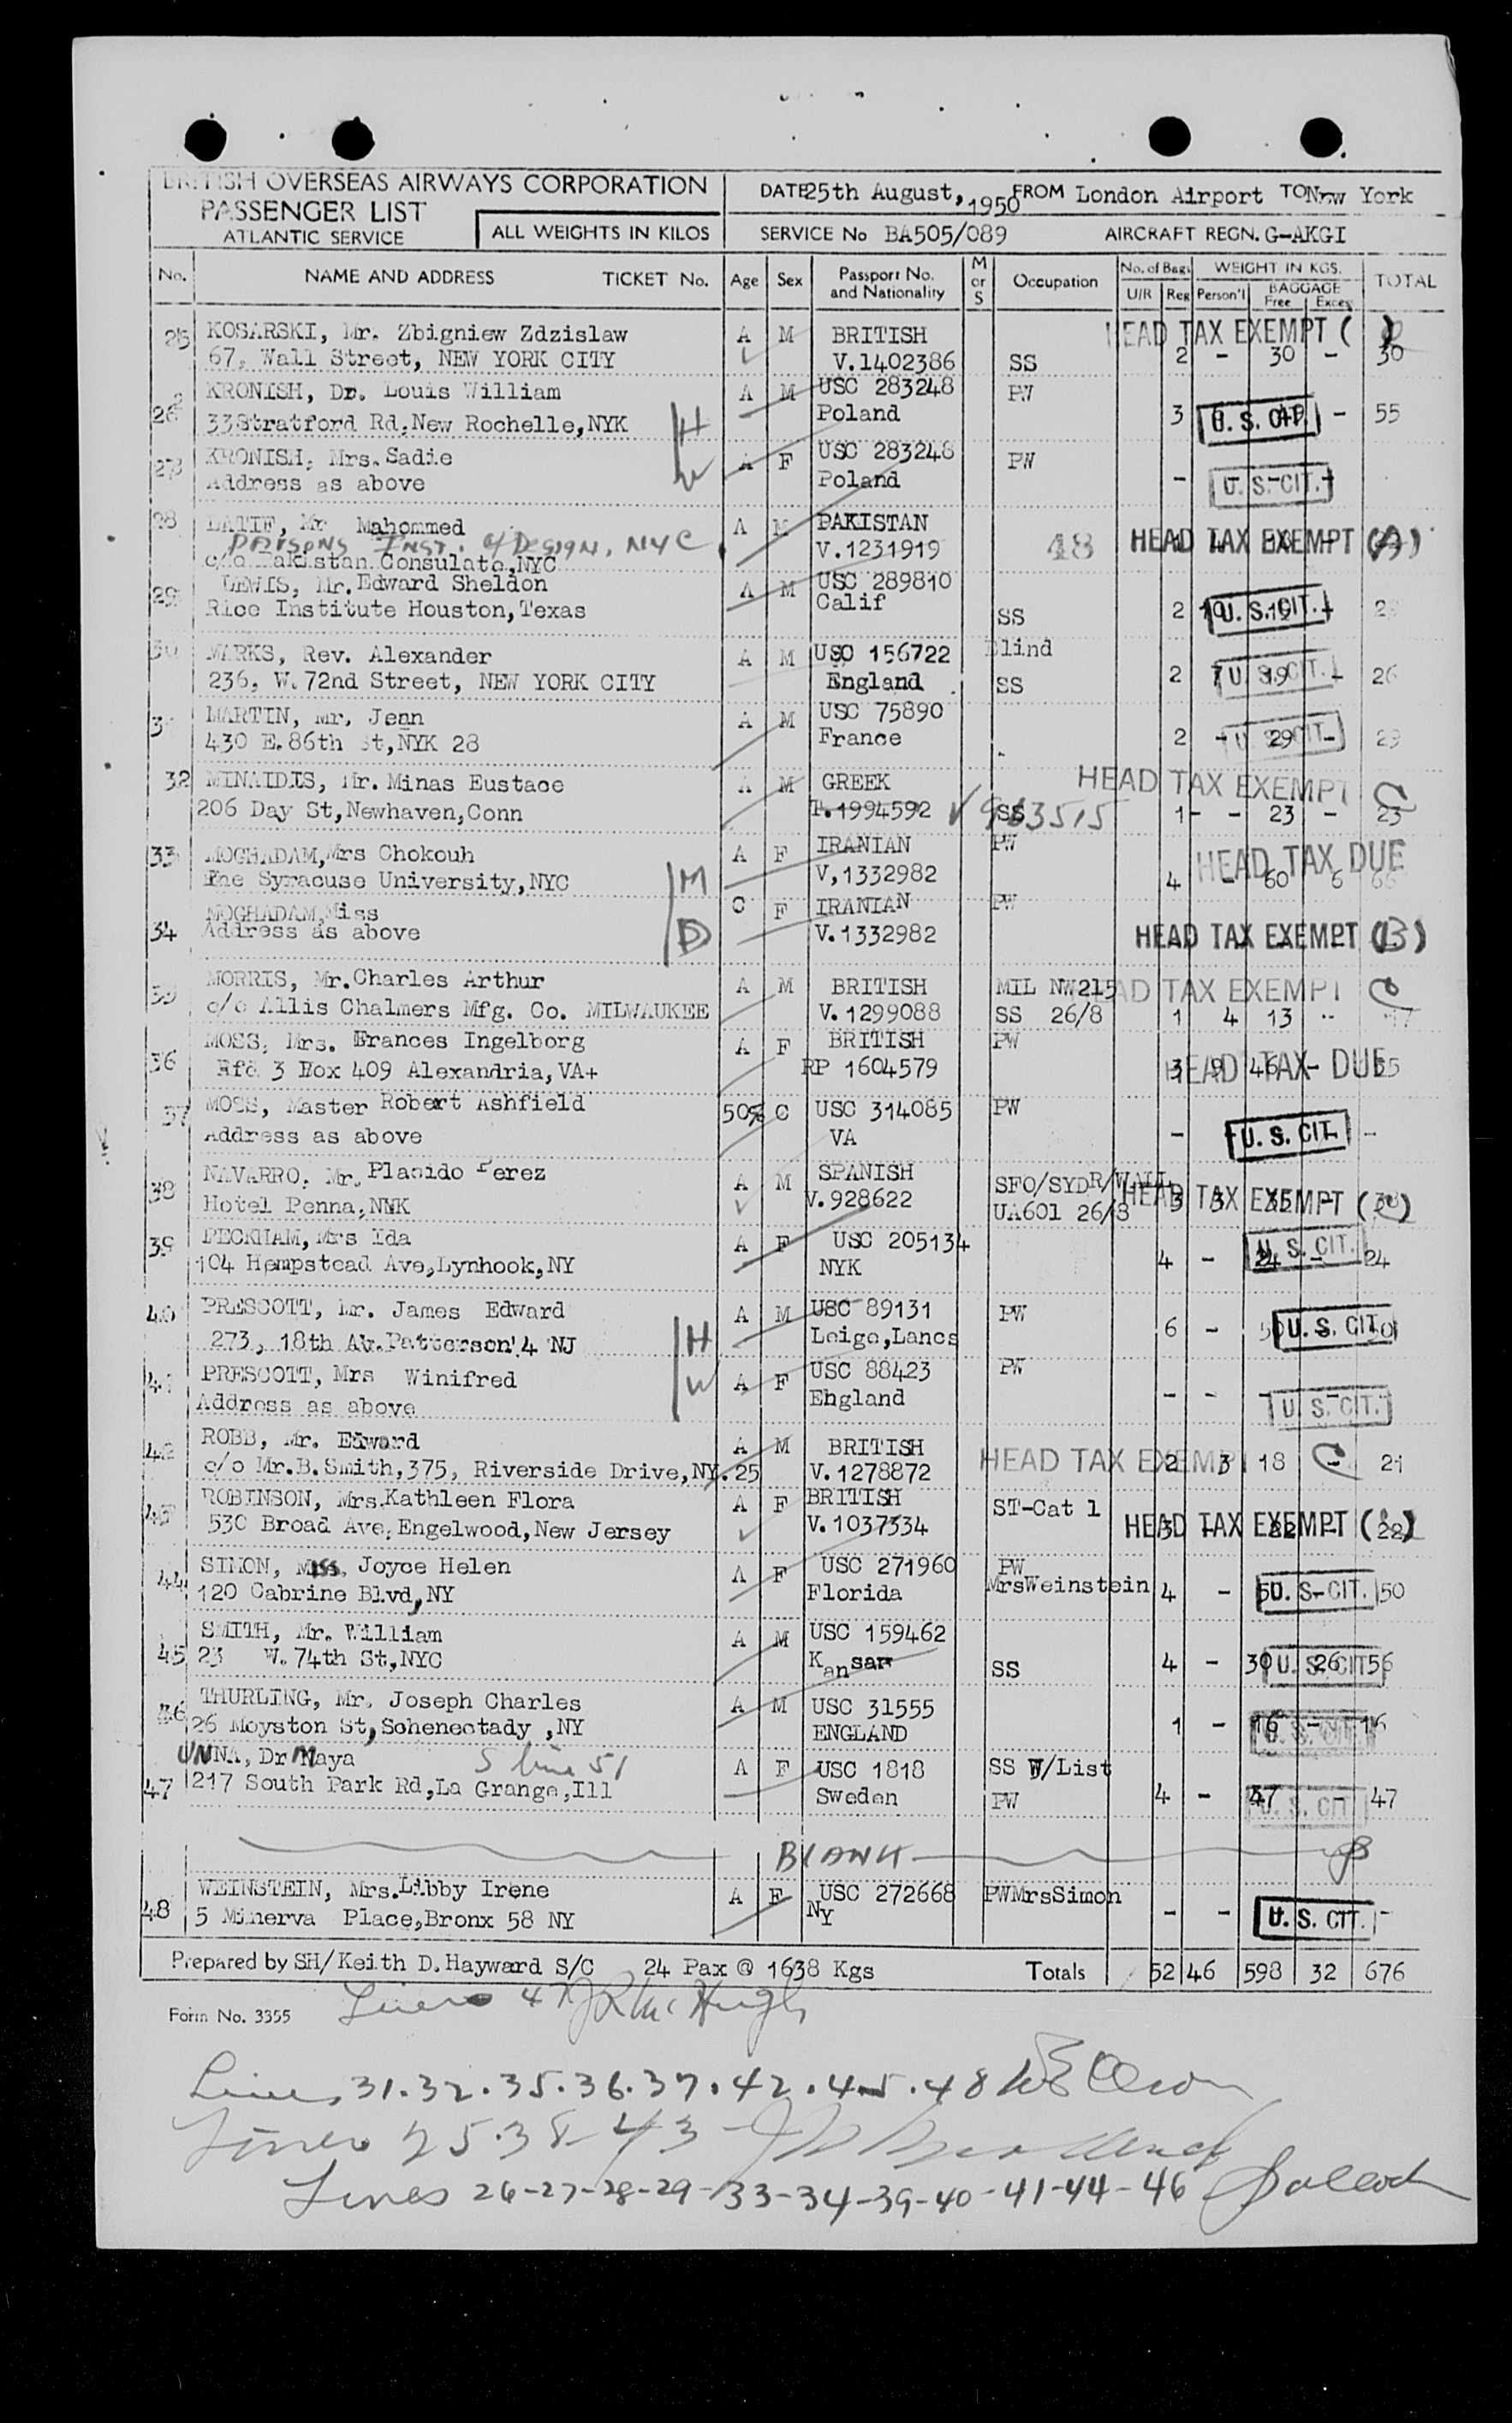 BRITISH OVERSEAS AIRWAYS CORPORATION
PASSENGER LIST
ATLANTIC SERVICE
ALL WEIGHTS IN KILOS
DATE 25th August, 1950 FROM London Airport TO New York
SERVICE No BA505/089 AIRCRAFT REGN. G-AKGI
No. NAME AND ADDRESS TICKET No. Age Sex Passport No. and Nationality M or S Occupation No. of Bags U/R Reg WEIGHT IN KGS. Person'l BAGGAGE Free Excess TOTAL
25 KOSARSKI, Mr. Zbigniew Zdzislaw A M BRITISH HEAD TAX EXEMPT ( )
67, Wall Street, NEW YORK CITY V.1402386 SS 2 - 30 - 30
26 KRONISH, Dr. Louis William A M USC 283248 PW
33 Stratford Rd, New Rochelle, NYK H Poland 3 U. S. CIT. - 55
27 KRONISH, Mrs. Sadie A F USC 283248 PW
Address as above W Poland - U. S. CIT.
28 LATIF, Mr Mahommed A M PAKISTAN
PARSONS INST. of DESIGN, NYC V.1231919 48 HEAD TAX EXEMPT (A)
c/o Pakistan Consulate, NYC
29 LEWIS, Mr. Edward Sheldon A M USC 289810
Rice Institute Houston, Texas Calif SS 2 10 U. S. CIT. 19
30 MARKS, Rev. Alexander A M USC 156722 Blind
236, W. 72nd Street, NEW YORK CITY England SS 2 7 U. S. CIT. 19 - 26
31 MARTIN, Mr. Jean A M USC 75890
430 E. 86th St, NYK 28 France 2 - U. S. CIT. 29 - 29
32 MINAIDIS, Mr. Minas Eustace A M GREEK HEAD TAX EXEMPT C
206 Day St, Newhaven, Conn T.1994592 V 963515 SS 1 - - 23 - 23
33 MOGHADAM, Mrs Chokouh A F IRANIAN PW HEAD TAX DUE
The Syracuse University, NYC M V,1332982 4 - 60 6 66
34 MOGHADAM, Miss C F IRANIAN PW
Address as above D V.1332982 HEAD TAX EXEMPT (B)
35 MORRIS, Mr. Charles Arthur A M BRITISH MIL NW215 HEAD TAX EXEMPT C
c/o Allis Chalmers Mfg. Co. MILWAUKEE V.1299088 SS 26/8 1 4 13 - 17
36 MOSS, Mrs. Frances Ingelborg A F BRITISH PW
Rfd 3 Box 409 Alexandria, VA+ RP 1604579 3 9 46 - 55 HEAD TAX DUE
37 MOSS, Master Robert Ashfield 50% C USC 314085 PW
Address as above VA - U. S. CIT. -
38 NAVARRO, Mr. Placido Perez A M SPANISH SFO/SYDR/WALL
Hotel Penna, NYK V.928622 UA601 26/8 3 3 35 - 38 HEAD TAX EXEMPT (C)
39 PECKHAM, Mrs Ida A F USC 205134 U. S. CIT.
104 Hempstead Ave, Lynhook, NY NYK 4 - 24 - 24
40 PRESCOTT, Mr. James Edward A M USC 89131 PW
273, 18th Av. Patterson' 4 NJ H Leigo, Lancs 6 - 50 U. S. CIT.
41 PRESCOTT, Mrs Winifred A F USC 88423 PW
Address as above W Ehgland - - U. S. CIT.
42 ROBB, Mr. Edward A M BRITISH HEAD TAX EXEMPT C
c/o Mr. B. Smith, 375, Riverside Drive, NY. 25 V.1278872 2 3 18 - 21
43 ROBINSON, Mrs. Kathleen Flora A F BRITISH ST-Cat 1
530 Broad Ave, Engelwood, New Jersey V.1037334 HEAD TAX EXEMPT
44 SIMON, Miss, Joyce Helen A F USC 271960 PW
120 Cabrine Blvd, NY Florida MrsWeinstein 4 - 50 U. S. CIT. 50
45 SMITH, Mr. William A M USC 159462
23 W. 74th St, NYC Kansas SS 4 - 30 U. S. CIT 26 56
46 THURLING, Mr. Joseph Charles A M USC 31555
26 Moyston St, Schenectady , NY ENGLAND 1 - 16 - 16 U. S. CIT.
UNNA, Dr Maya S line 51 A F USC 1818 SS W/List
47 217 South Park Rd, La Grange, Ill Sweden PW 4 - 47 - 47 U. S. CIT
BLANK
48 WEINSTEIN, Mrs. Libby Irene A F USC 272668 PWMrsSimon
5 Minerva Place, Bronx 58 NY NY - - U. S. CIT. -
Prepared by SH/Keith D. Hayward S/C 24 Pax @ 1638 Kgs Totals 52 46 598 32 676
Form No. 3355
Lines 31.32.35.36.37.42.45.48
Lines 25.38-43
Lines 26-27-28-29-33-34-39-40-41-44-46